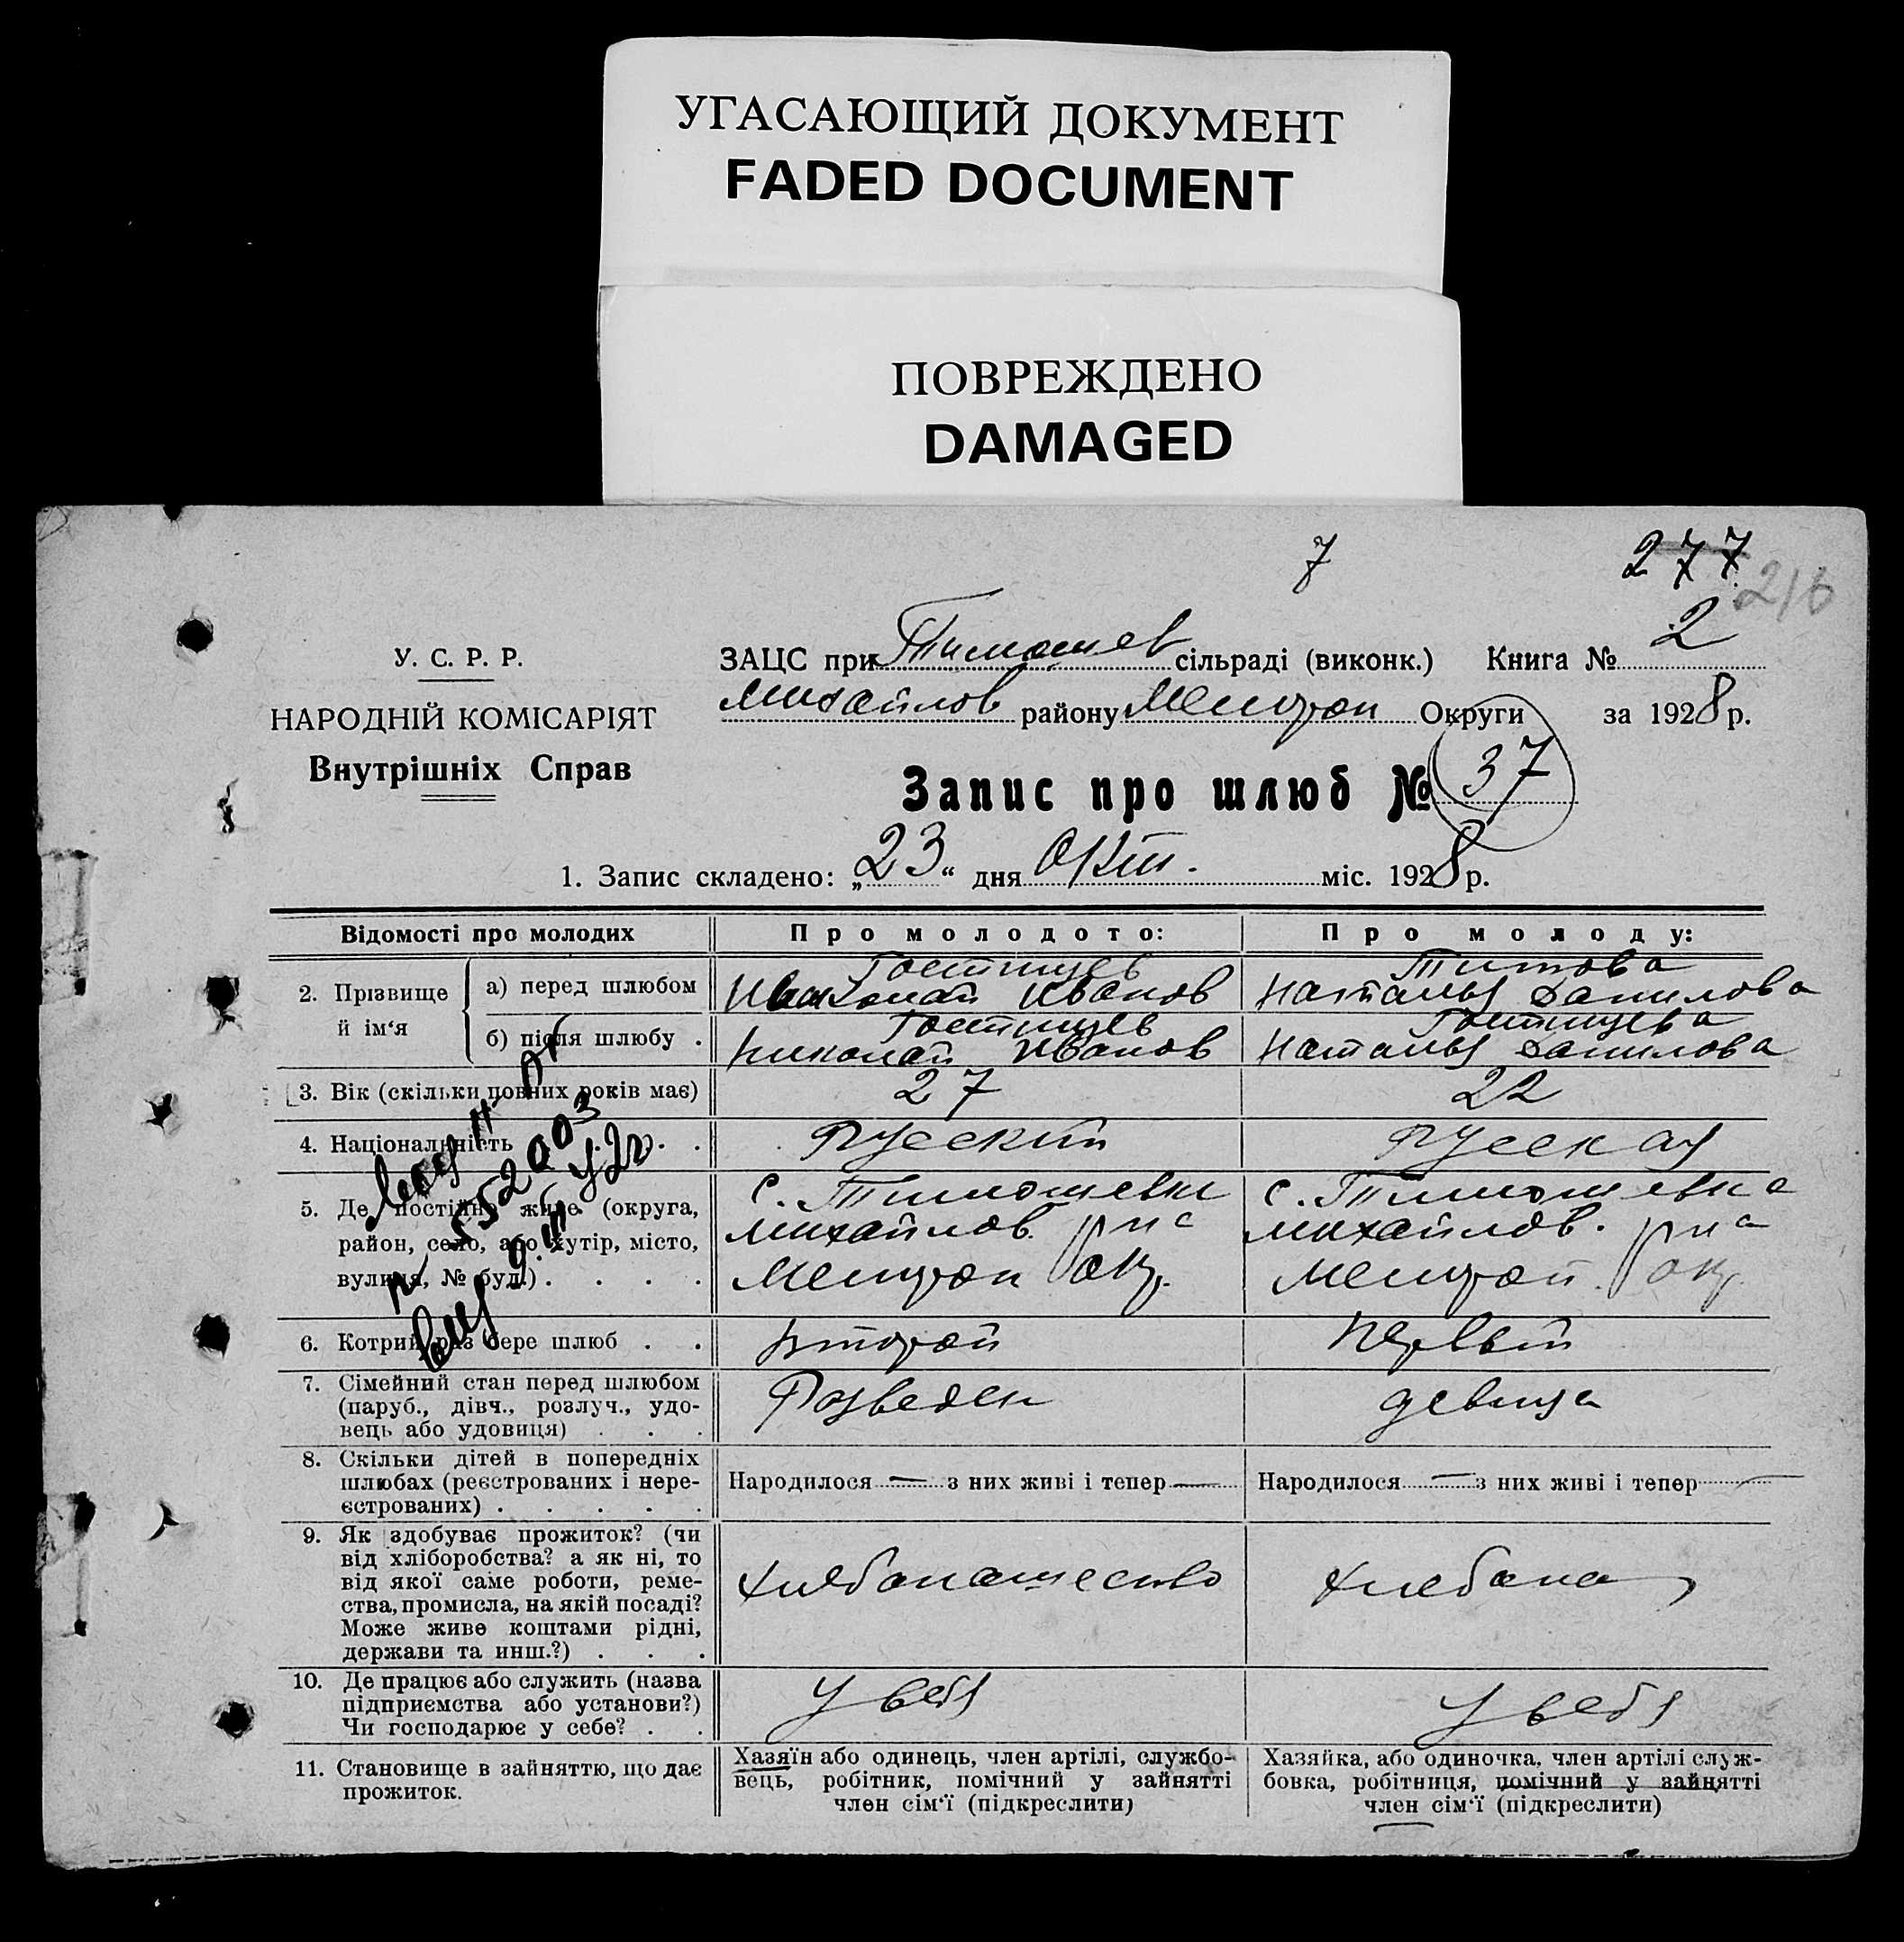 УГАСАЮЩИЙ ДОКУМЕНТ
FADED DOCUMENT
ПОВРЕЖДЕНО
DAMAGED
7
277
216
У. С. Р. Р.
НАРОДНІЙ КОМІСАРІЯТ
Внутрішніх Справ
ЗАЦС при Тимошев сільраді (виконк.) Книга № 2
Михайлов району Мелитоп Округи за 1928 р.
Запис про шлюб № 37
1. Запис складено: „23“ дня Окт. міс. 1928 р.
Відомості про молодих
Про молодого:
Про молоду:
2. Прізвище й ім‘я
а) перед шлюбом
Гостищев
Николай Иванов
Титова
Наталья Данилова
б) після шлюбу .
Гостищев
Николай Иванов
Гостищева
Наталья Данилова
3. Вік (скільки повних років має)
27
22
4. Національність . .
Русский
Русская
5. Де постійно живе (округа,
район, село, або хутір, місто,
вулиця, № буд.) . . . .
с. Тимошевки
Михайлов. р на
Мелитоп окр.
с. Тимошевка
Михайлов. р на
Мелитоп. окр.
6. Котрий раз бере шлюб . .
Второй
Первый
7. Сімейний стан перед шлюбом
(паруб., дівч., розлуч., удо-
вець або удовиця) . . .
Разведен
девица
8. Скільки дітей в попередніх
шлюбах (реєстрованих і нере-
єстрованих) . . . . .
Народилося — з них живі і тепер —
Народилося — з них живі і тепер —
9. Як здобуває прожиток? (чи
від хліборобства? а як ні, то
від якої саме роботи, реме-
ства, промисла, на якій посаді?
Може живе коштами рідні,
держави та инш.?) . . .
Хлебопашество
Хлебопа
10. Де працює або служить (назва
підприємства або установи?)
Чи господарює у себе? . .
У себя
У себя
11. Становище в зайняттю, що дає
прожиток.
Хазяїн або одинець, член артілі, службо-
вець, робітник, помічний у зайнятті
член сім‘ї (підкреслити)
Хазяйка, або одиночка, член артілі служ-
бовка, робітниця, помічний у зайнятті
член сім‘ї (підкреслити)